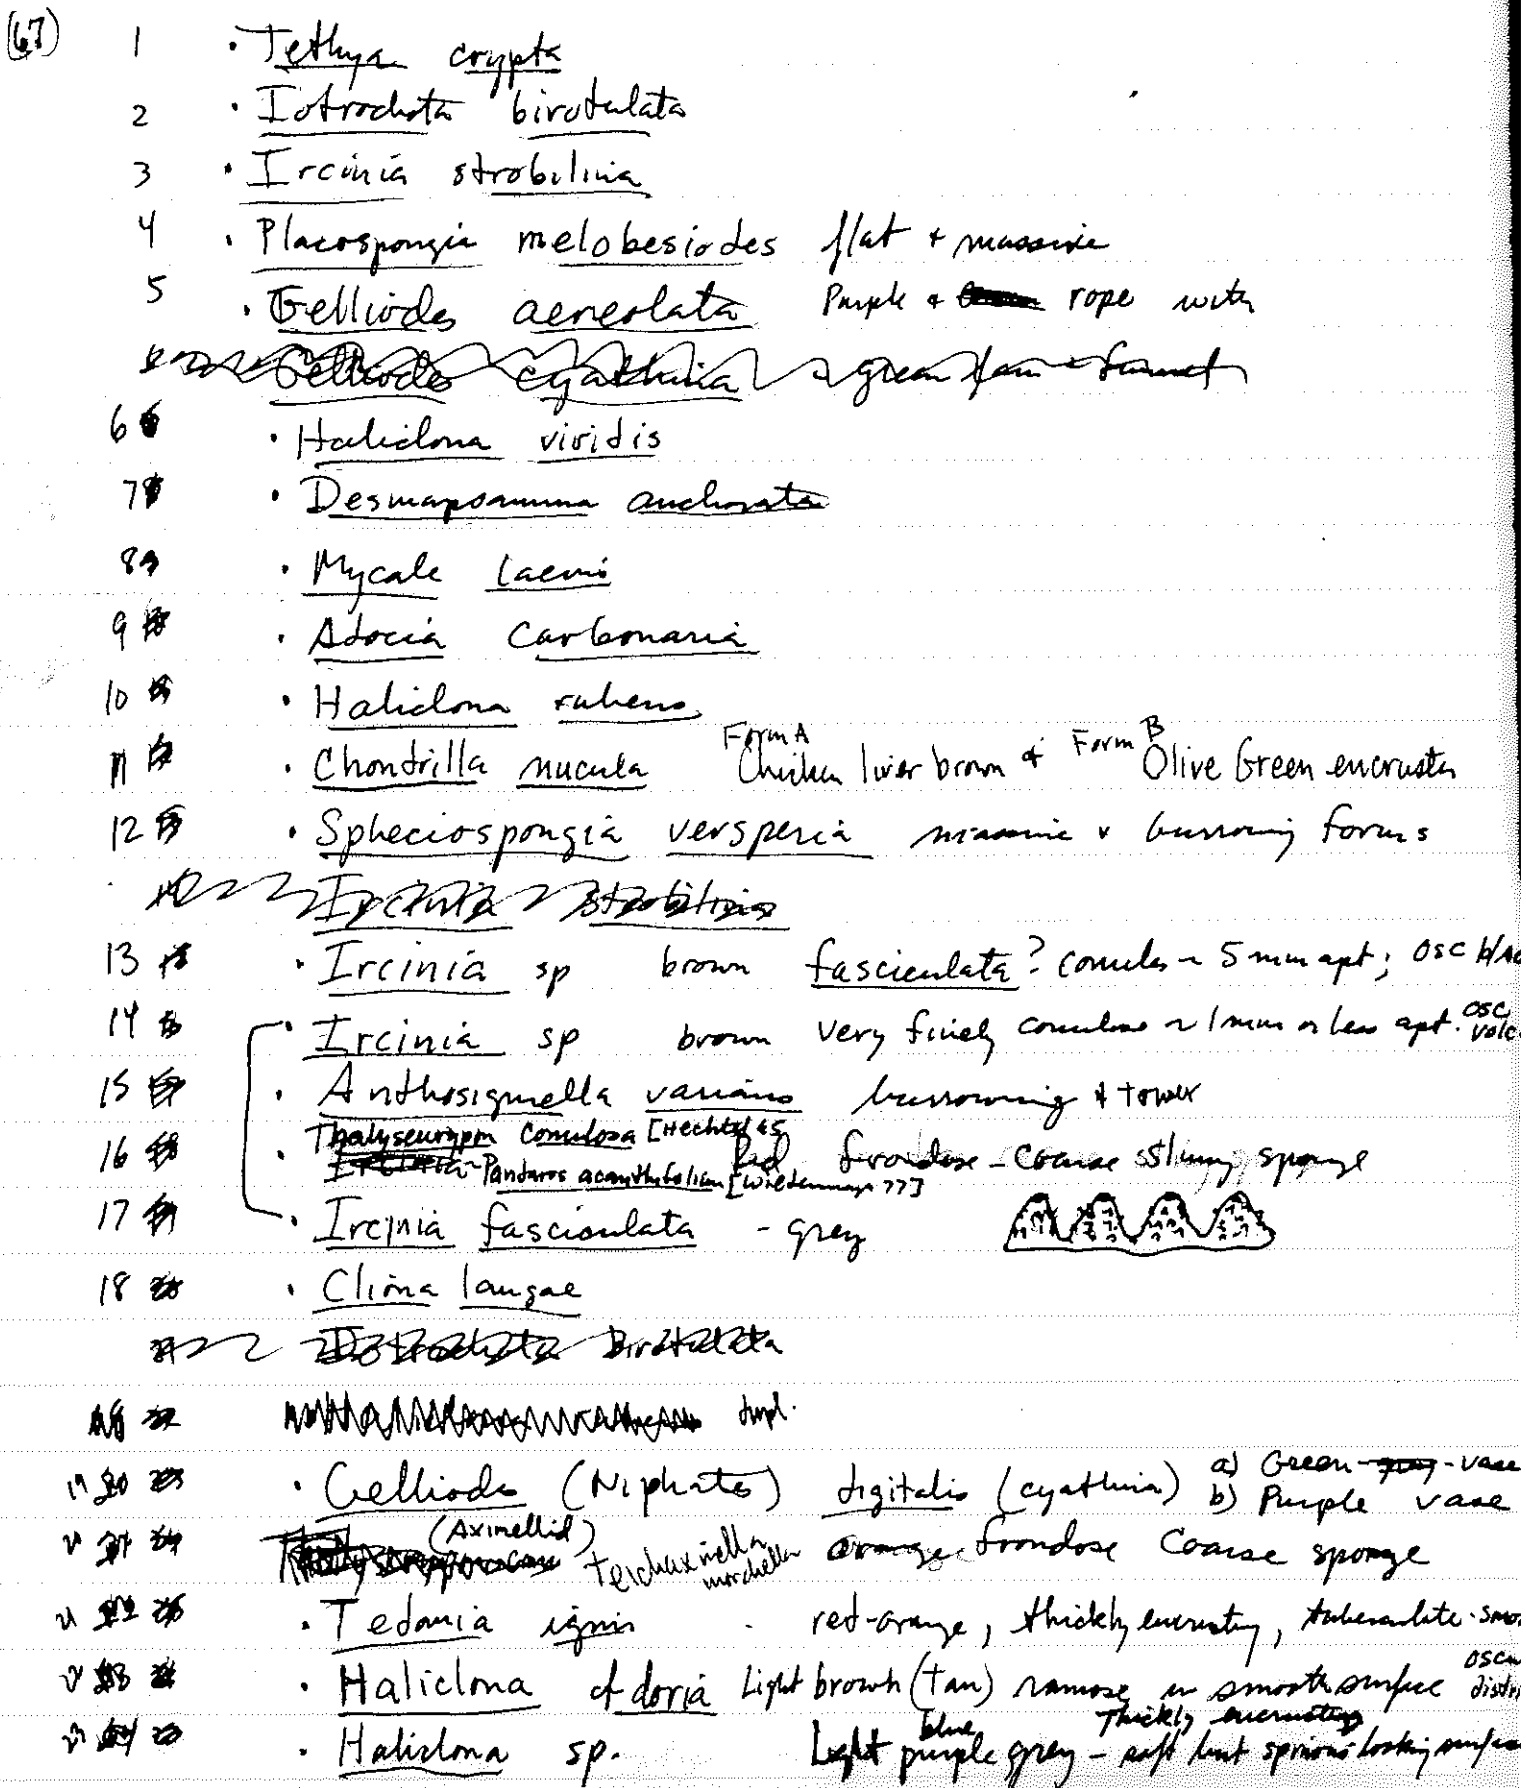 (67) 1 · Tethya crypta
2 · Iotrochota birotulata
3 · Ircinia strobilina
4 · Placospongia melobesiodes flat + massive
5 · Gelliodes aereolata Purple + rope with
Gelliodes cyathina green fan + funnel
6 · Haliclona viridis
7 · Desmapsamma anchorata
8 · Mycale laevis
9 · Adocia carbonaria
10 · Haliclona rubens
11 · Chondrilla nucula Form A Chicken liver brown & Form B Olive Green encrusten
12 · Spheciospongia versperia massive + burrowing forms
Ircinia strobilina
13 · Ircinia sp brown fasciculata? conules ~ 5 mm apt; osc
14 · Ircinia sp brown very finely conulose ~ 1 mm or less apt. osc
15 · Anthosigmella varians burrowing & tower
Thalyseurypon conulosa [Hechtel 65
16 · Red frondose - coarse slimy sponge
Pandaros acanthifolium [Wiedenmayer 77]
17 · Ircinia fasciculata - grey
18 · Cliona langae
Iotrochota birotulata
dupl.
19 · Gelliodes (Niphates) digitalis (cyathina) a) Green-gray-vase
b) Purple vase
(Axinellid) Teichaxinella morchella orange frondose coarse sponge
21 · Tedania ignis red-orange, thickly encrusting, tuberculate-
· Haliclona cf doria Light brown (Tan) ramose w smooth surface
blue Thickly encrusting
· Haliclona sp. Light purple grey - soft but looking